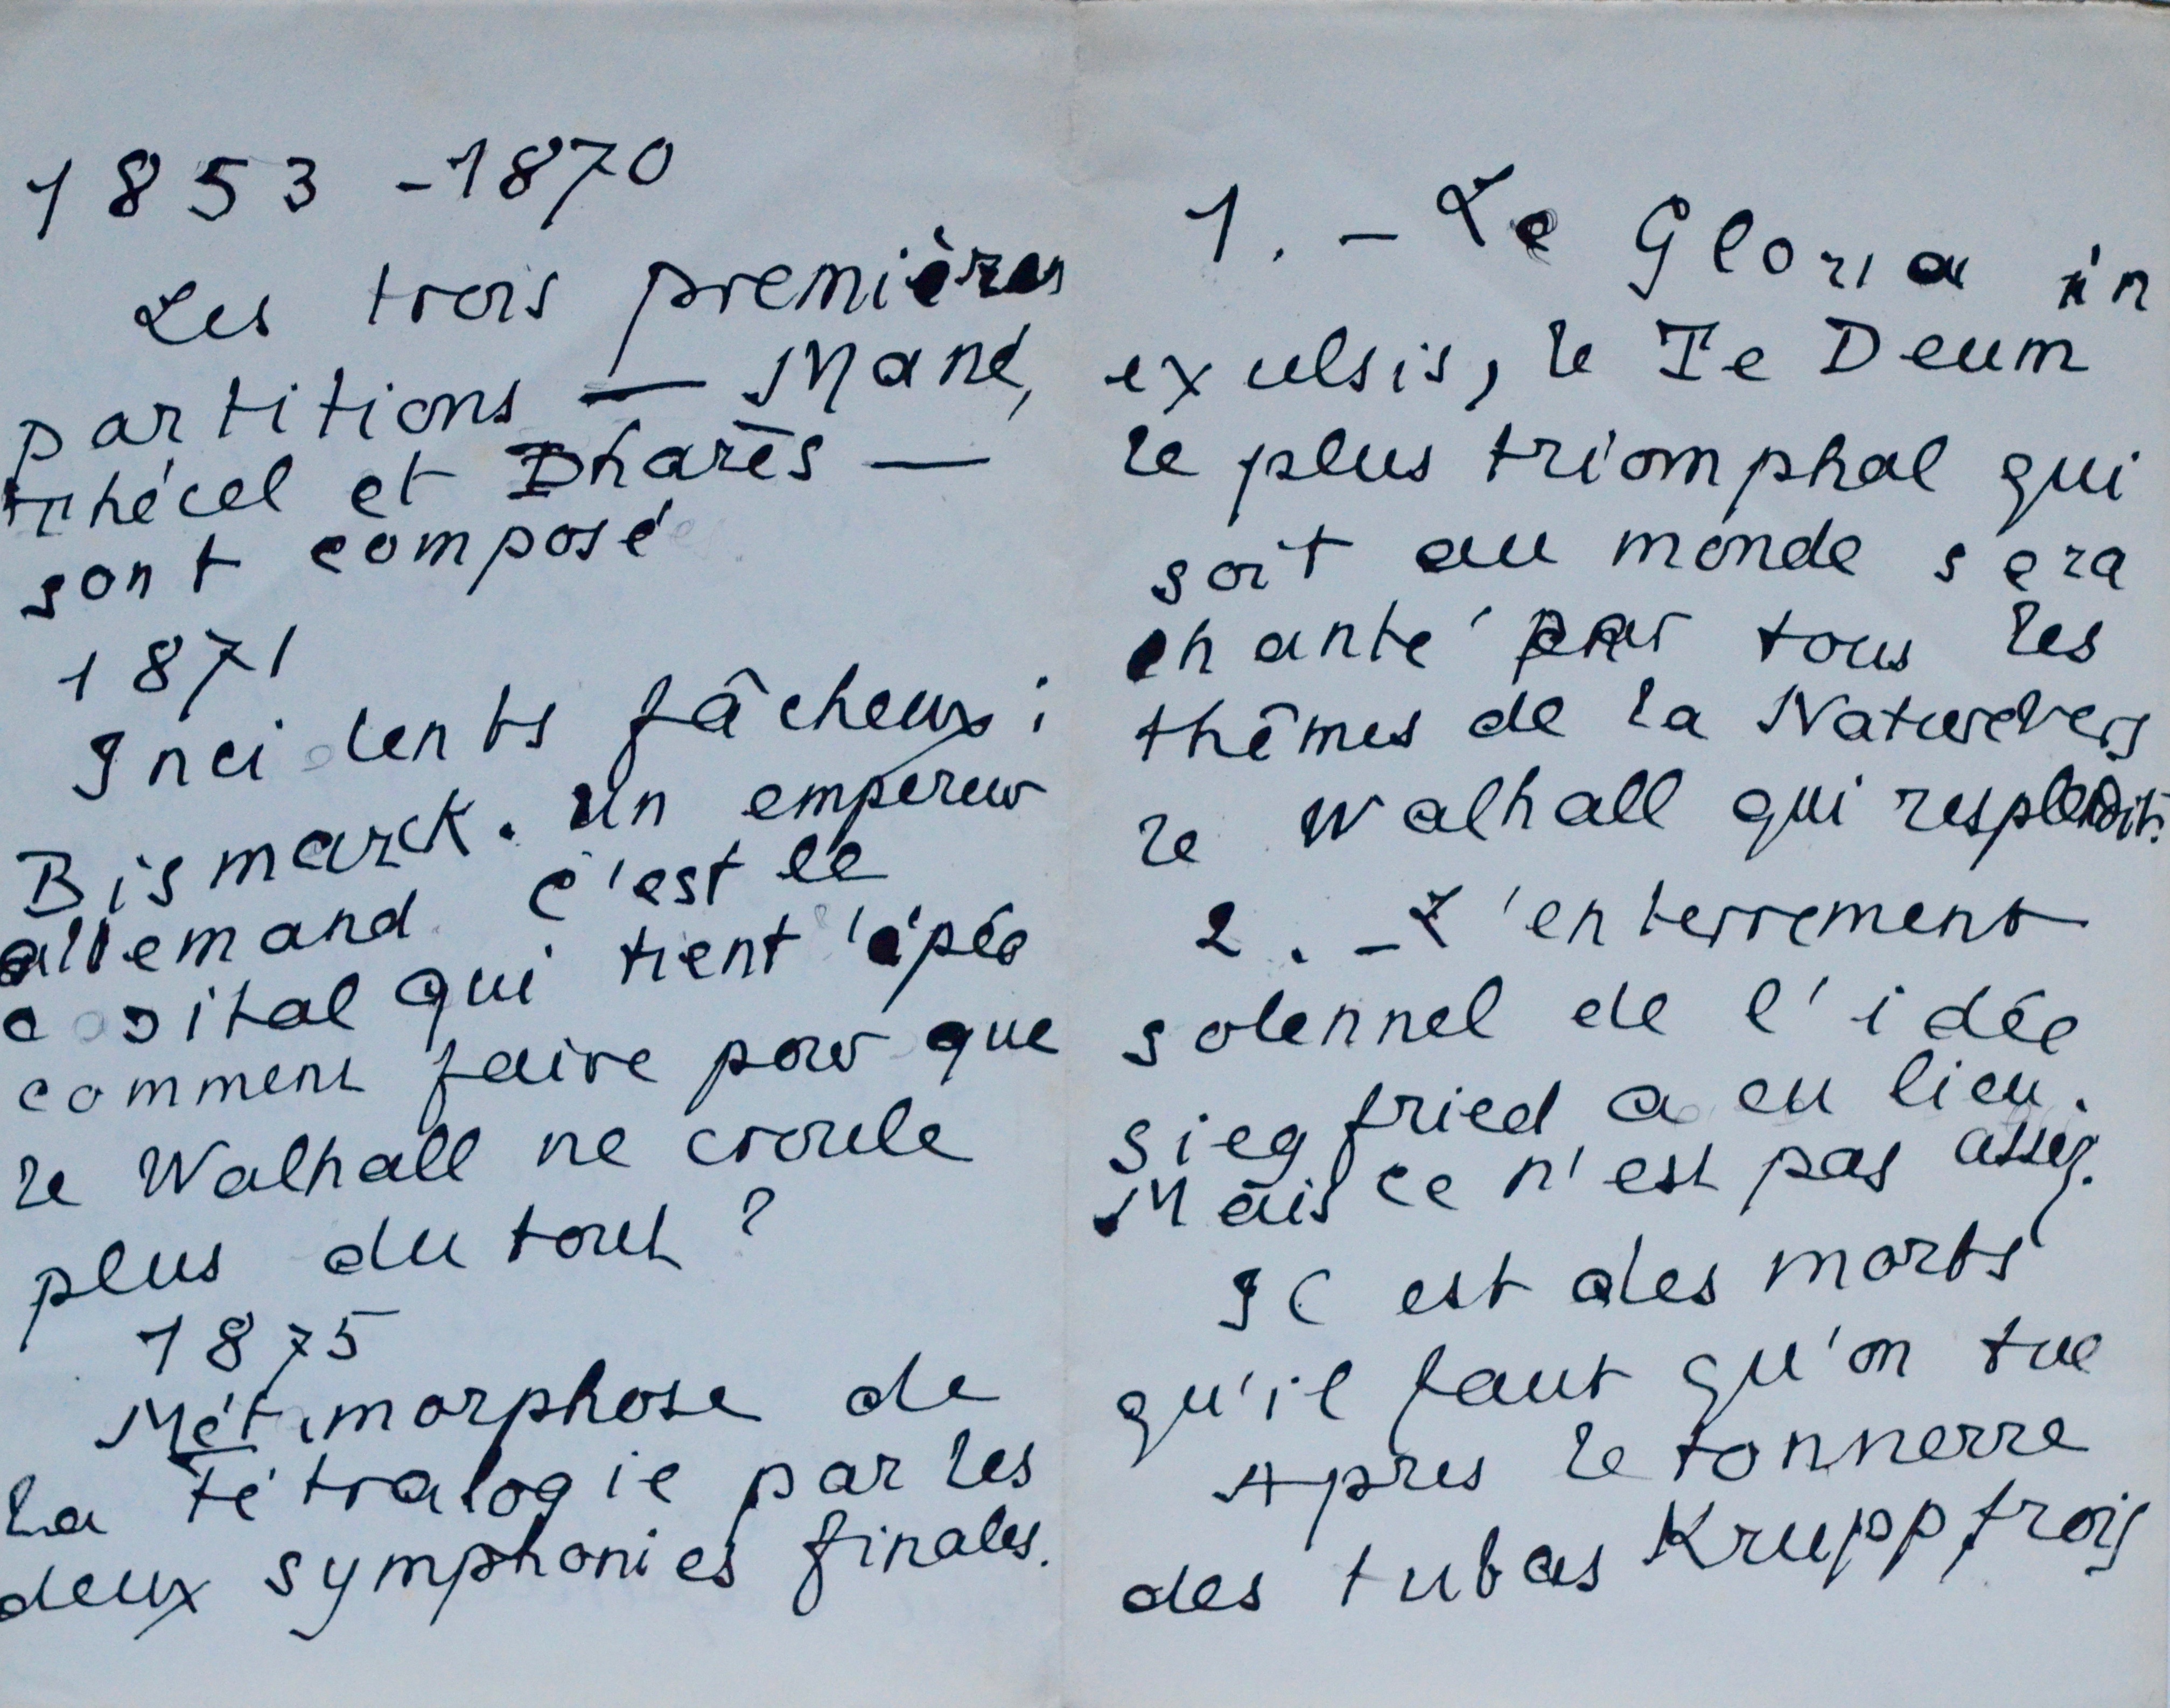 1853 - 1870
Les trois premières
partitions — Mané,
thécel et Pharès —
sont composées
1871
Incidents fâcheux :
Bismarck. Un empereur
allemand c'est le
capital qui tient l'épée
comment faire pour que
le Walhall ne croule
plus du tout ?
1875
Métamorphose de
la Tétralogie par les
deux symphonies finales.
1. - Le Gloria in
exulsis, le Te Deum
le plus triomphal qui
soit au monde sera
chanté par tous les
thêmes de la Nature vers
le Walhall qui resplendit.
2. - L'enterrement
solennel de l'idée
Siegfried a eu lieu.
Mais ce n'est pas assez.
Il est des morts
qu'il faut qu'on tue
Apres le tonnerre
des tubas Krupp trois